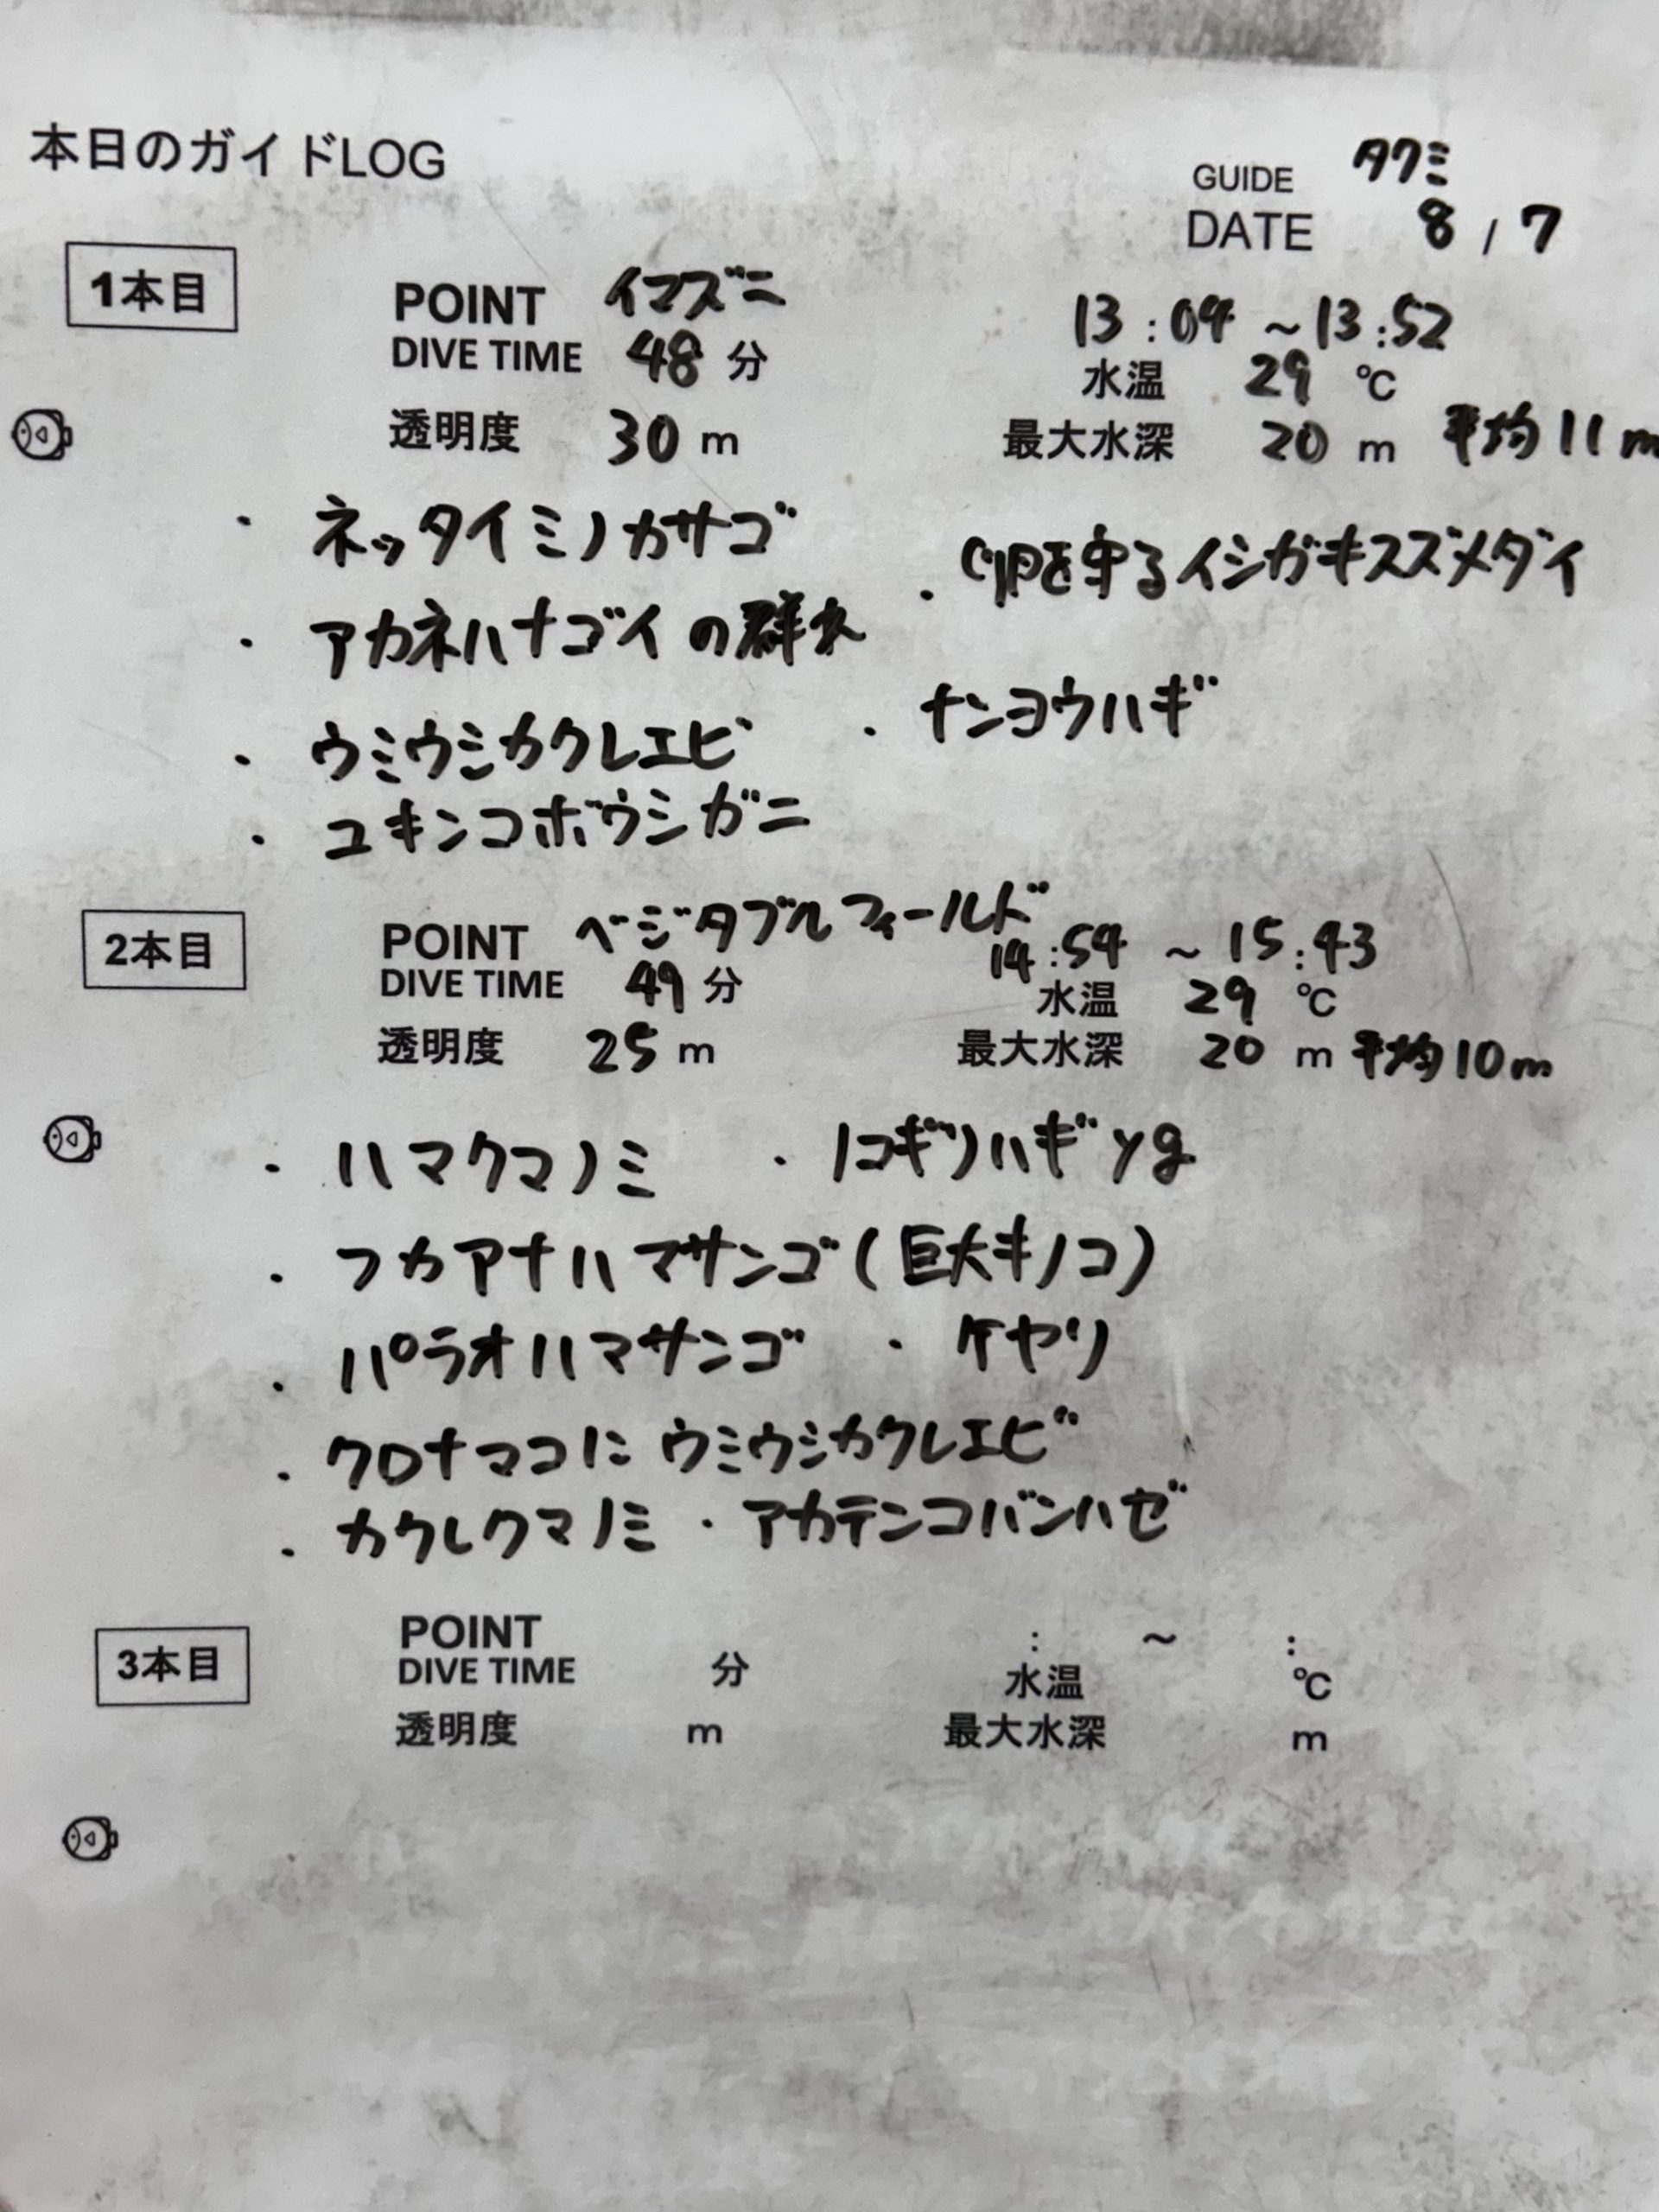 本日のガイドLOG
GUIDE タクミ
DATE 8 / 7
1本目
POINT イマズニ 13:04 ~ 13:52
DIVE TIME 48 分 水温 29 ℃
透明度 30 m 最大水深 20 m 平均 11m
・ネッタイミノカサゴ
・卵を守るイシガキスズメダイ
・アカネハナゴイの群れ
・ナンヨウハギ
・ウミウシカクレエビ
・ユキンコボウシガニ
2本目
POINT ベジタブルフィールド 14:54 ~ 15:43
DIVE TIME 49 分 水温 29 ℃
透明度 25 m 最大水深 20 m 平均10m
・ハマクマノミ ・ノコギリハギyg
・フカアナハマサンゴ(巨大キノコ)
・パラオハマサンゴ ・ケヤリ
・クロナマコにウミウシカクレエビ
・カクレクマノミ・アカテンコバンハゼ
3本目
POINT : ~ :
DIVE TIME 分 水温 ℃
透明度 m 最大水深 m